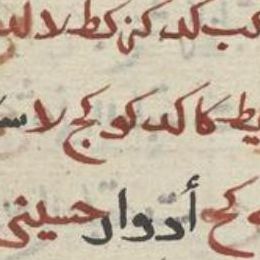 كب كد كن كط لا لد
يط كا كد كو كج لا
كج أدوار حسيني